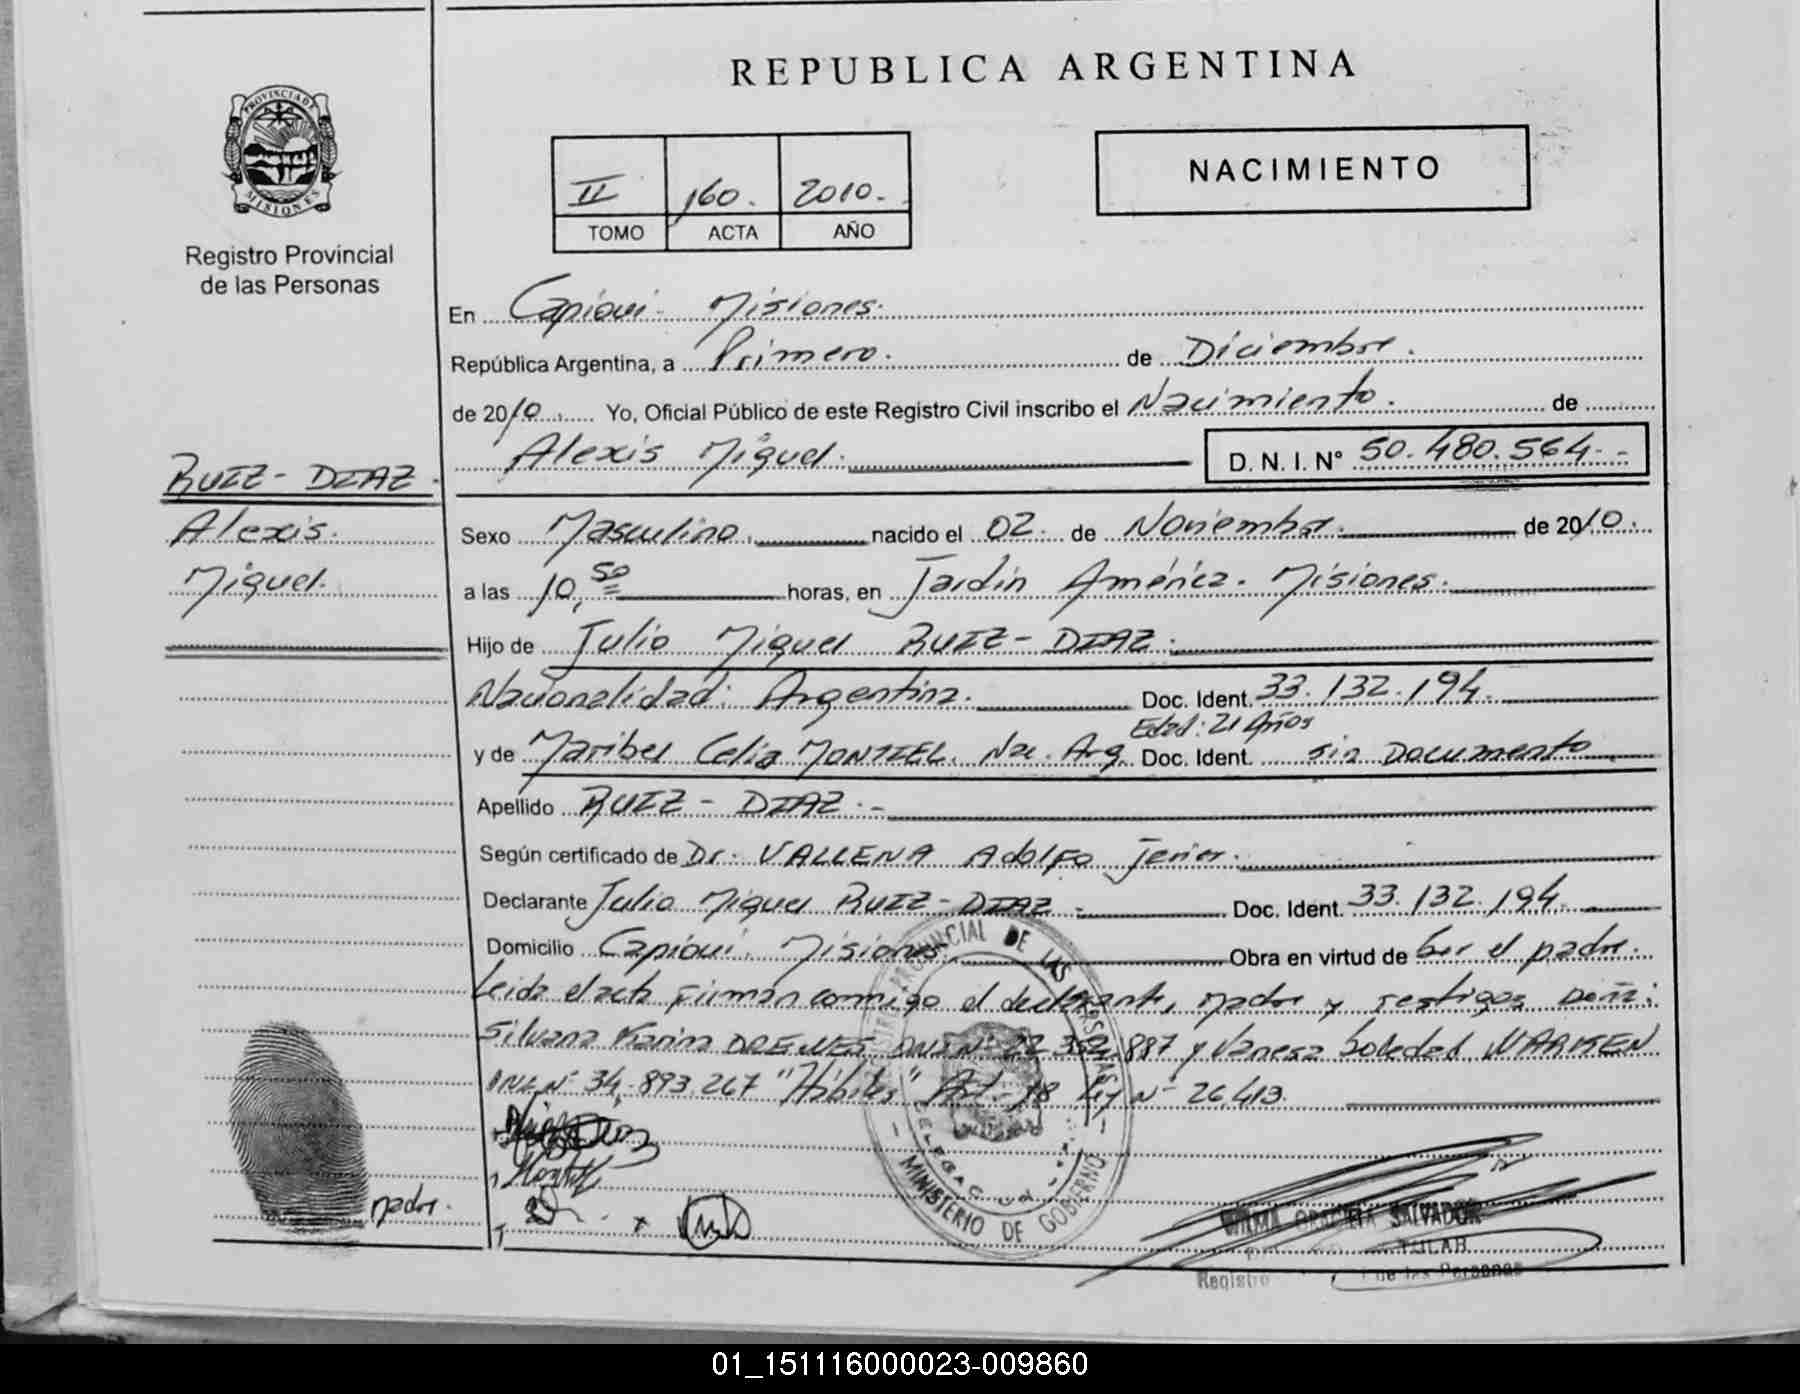 REPUBLICA ARGENTINA
PROVINCIA DE
MISIONES
Registro Provincial
de las Personas
II 160. 2010.
TOMO ACTA AÑO
NACIMIENTO
En Capioui - Misiones.
República Argentina, a Primero. de Diciembre.
de 2010. Yo, Oficial Público de este Registro Civil inscribo el Nacimiento. de
Alexis Miguel. D. N. I. Nº 50.480.564.-
RUIZ - DIAZ.
Alexis.
Miguel.
Sexo Masculino. nacido el 02. de Noviembre. de 2010.
a las 10,50 horas, en Jardín América. Misiones.
Hijo de Julio Miguel RUIZ-DIAZ.
Nacionalidad: Argentina. Doc. Ident. 33.132.194.
Edad: 21 Años
y de Maribel Celia MONTIEL. Nac. Arg. Doc. Ident. sin Documento
Apellido RUIZ - DIAZ.-
Según certificado de Dr. VALLENA Adolfo Javier.
Declarante Julio Miguel RUIZ-DIAZ - Doc. Ident. 33.132.194.
Domicilio Capioui. Misiones. Obra en virtud de Ser el padre.
Leida el acta firman conmigo el declarante, madre y testigos Doña:
Silvana Karina DREWES DNI Nº 22.352.887 y Vanesa Soledad
DNI Nº 34.893.267 "Hábiles" Art. 18 Ley Nº 26.413.
madre.
PROVINCIAL DE LAS PERSONAS
MINISTERIO DE GOBIERNO
WILMA GRACIELA SALVADOR
TITULAR
Registro de las Personas
01_151116000023-009860